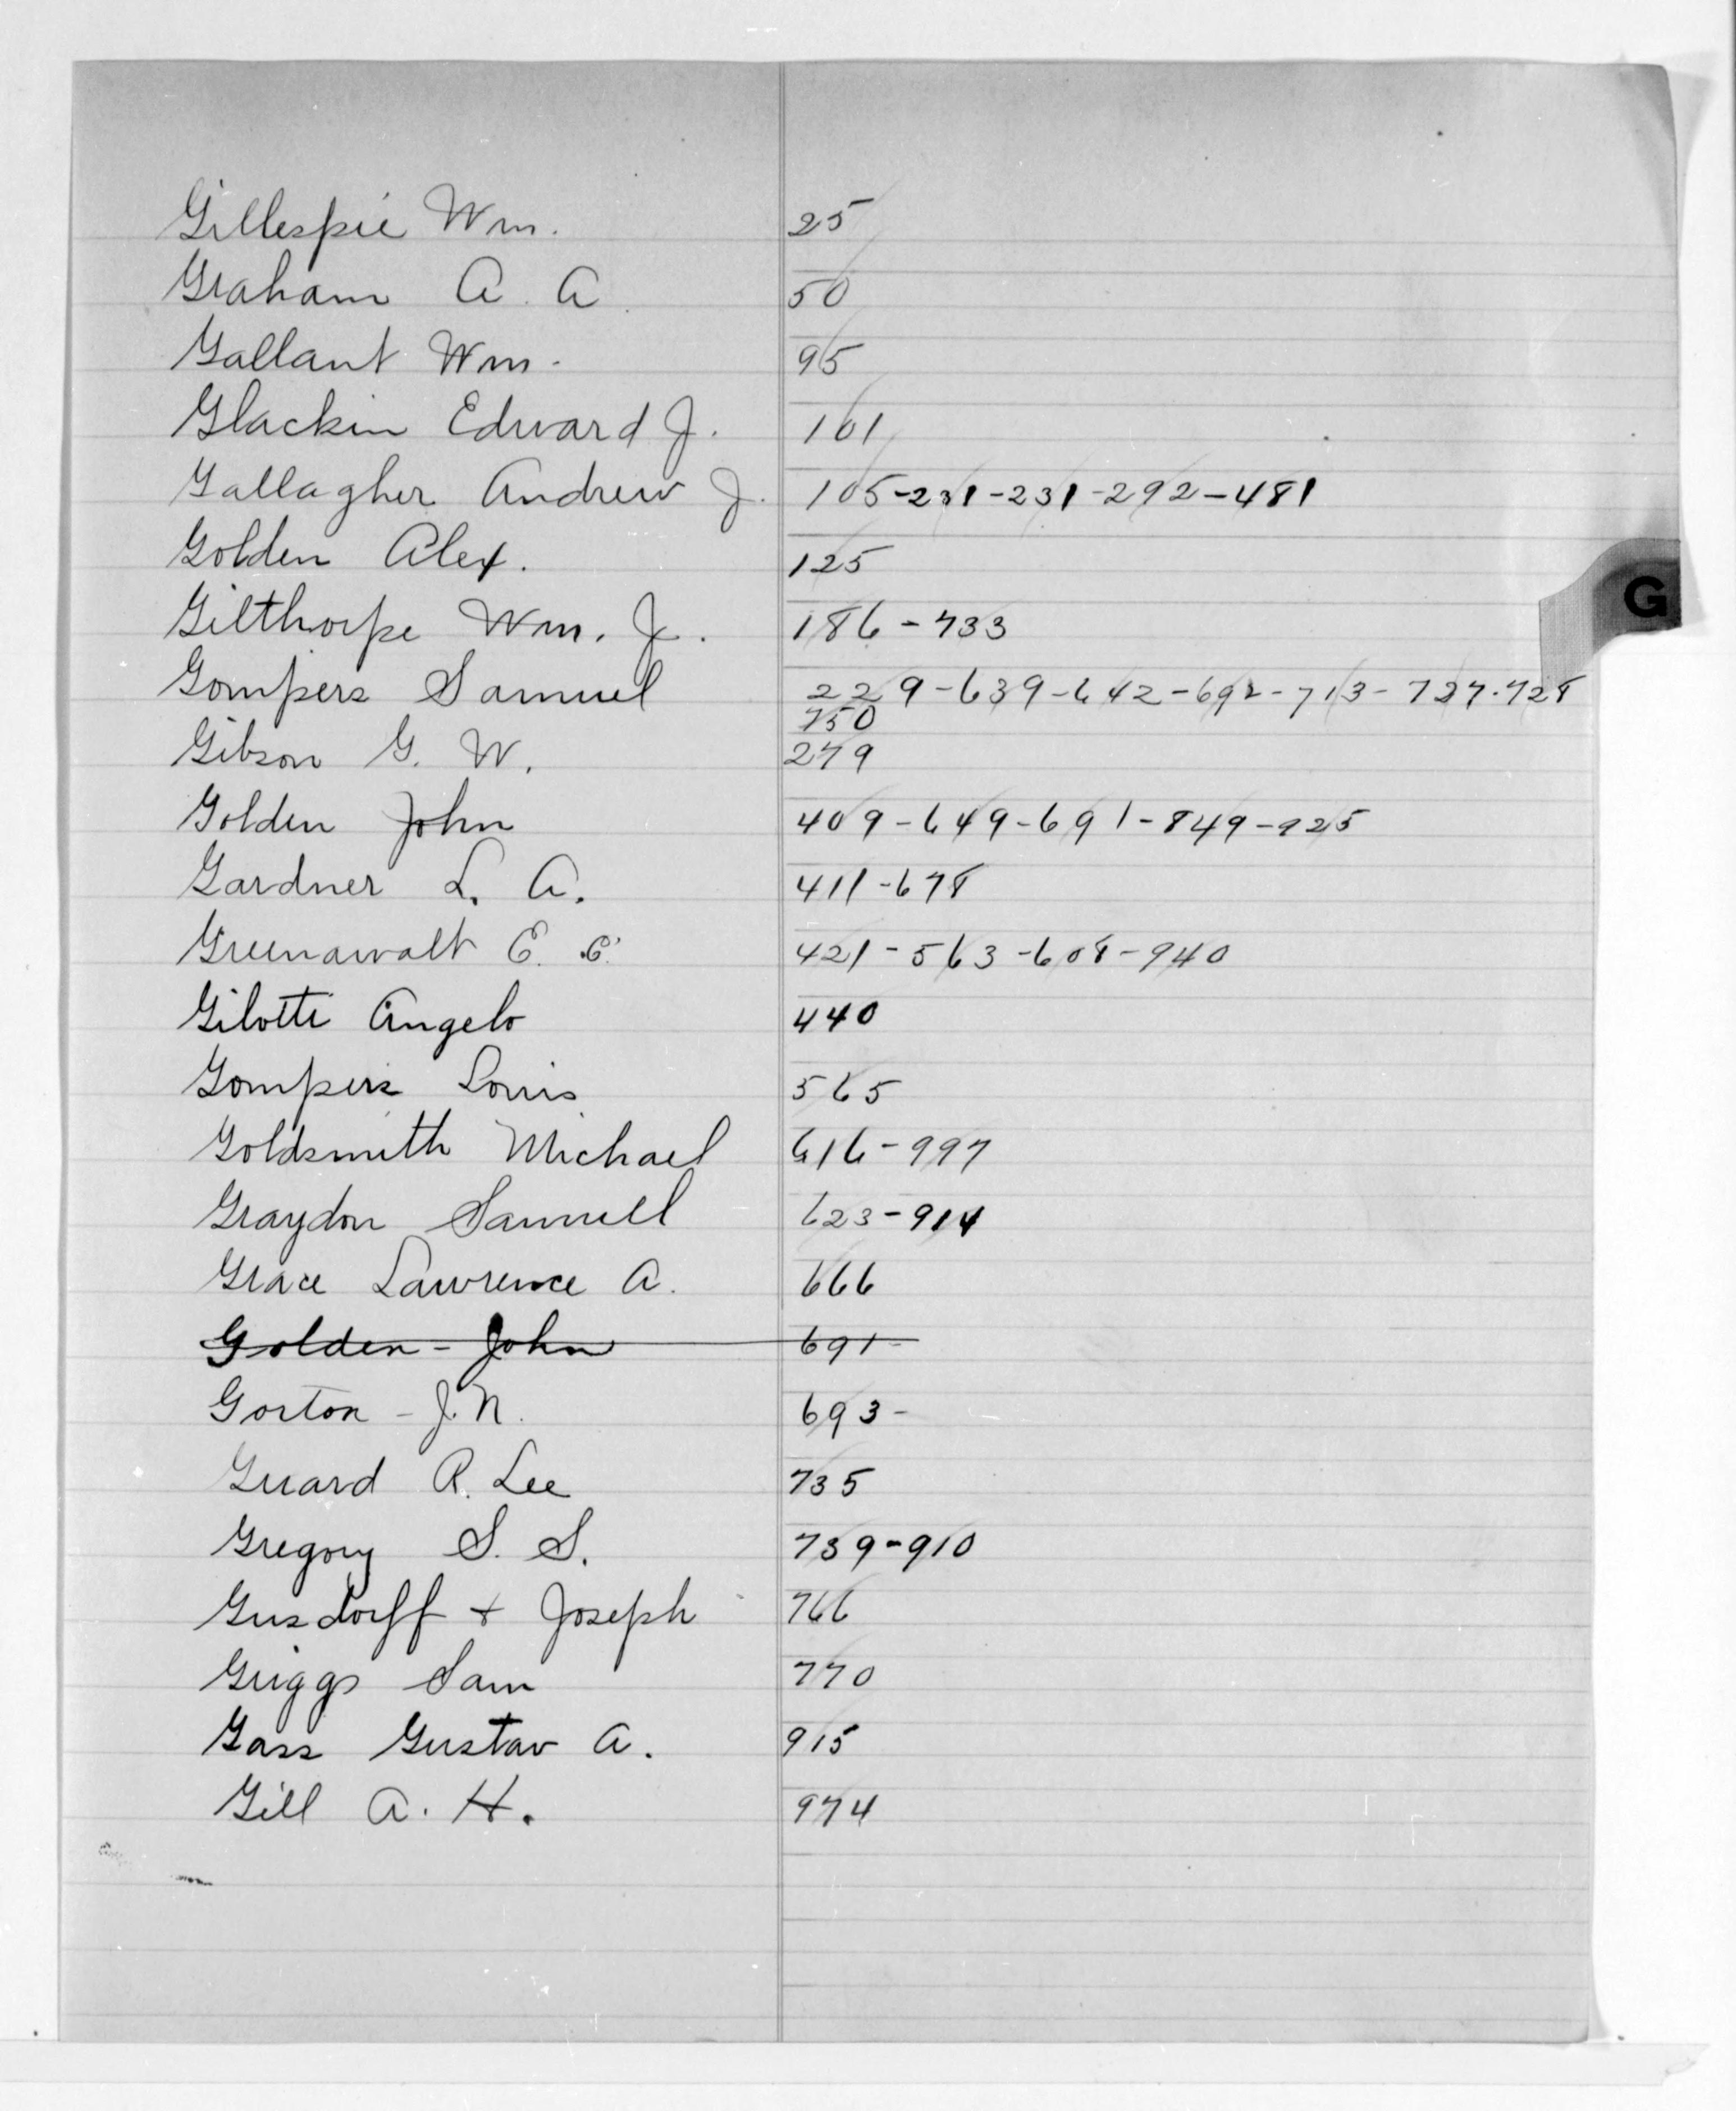 Gillespie Wm. 25
Graham A. A. 50
Gallant Wm. 95
Glackin Edward J. 101
Gallagher Andrew J. 105-231-231-292-481
G
Golden Alex. 125
Gilthorpe Wm. J. 186-733
Gompers Samuel 229-639-642-692-713-727-728
750
Gibson G. W. 279
Golden John 409-649-691-849-925
Gardner L. A. 411-678
Greenawalt E. E. 421-563-608-940
Gilotti Angelo 440
Gompers Louis 565
Goldsmith Michael 616-997
Graydon Samuell 623-914
Grace Lawrence A. 666
Golden - John 691-
Gorton - J. N. 693-
Guard R. Lee 735
Gregory S. S. 739-910
Gusdorff & Joseph 766
Griggs Sam 770
Gass Gustav A. 915
Gill A. H. 974